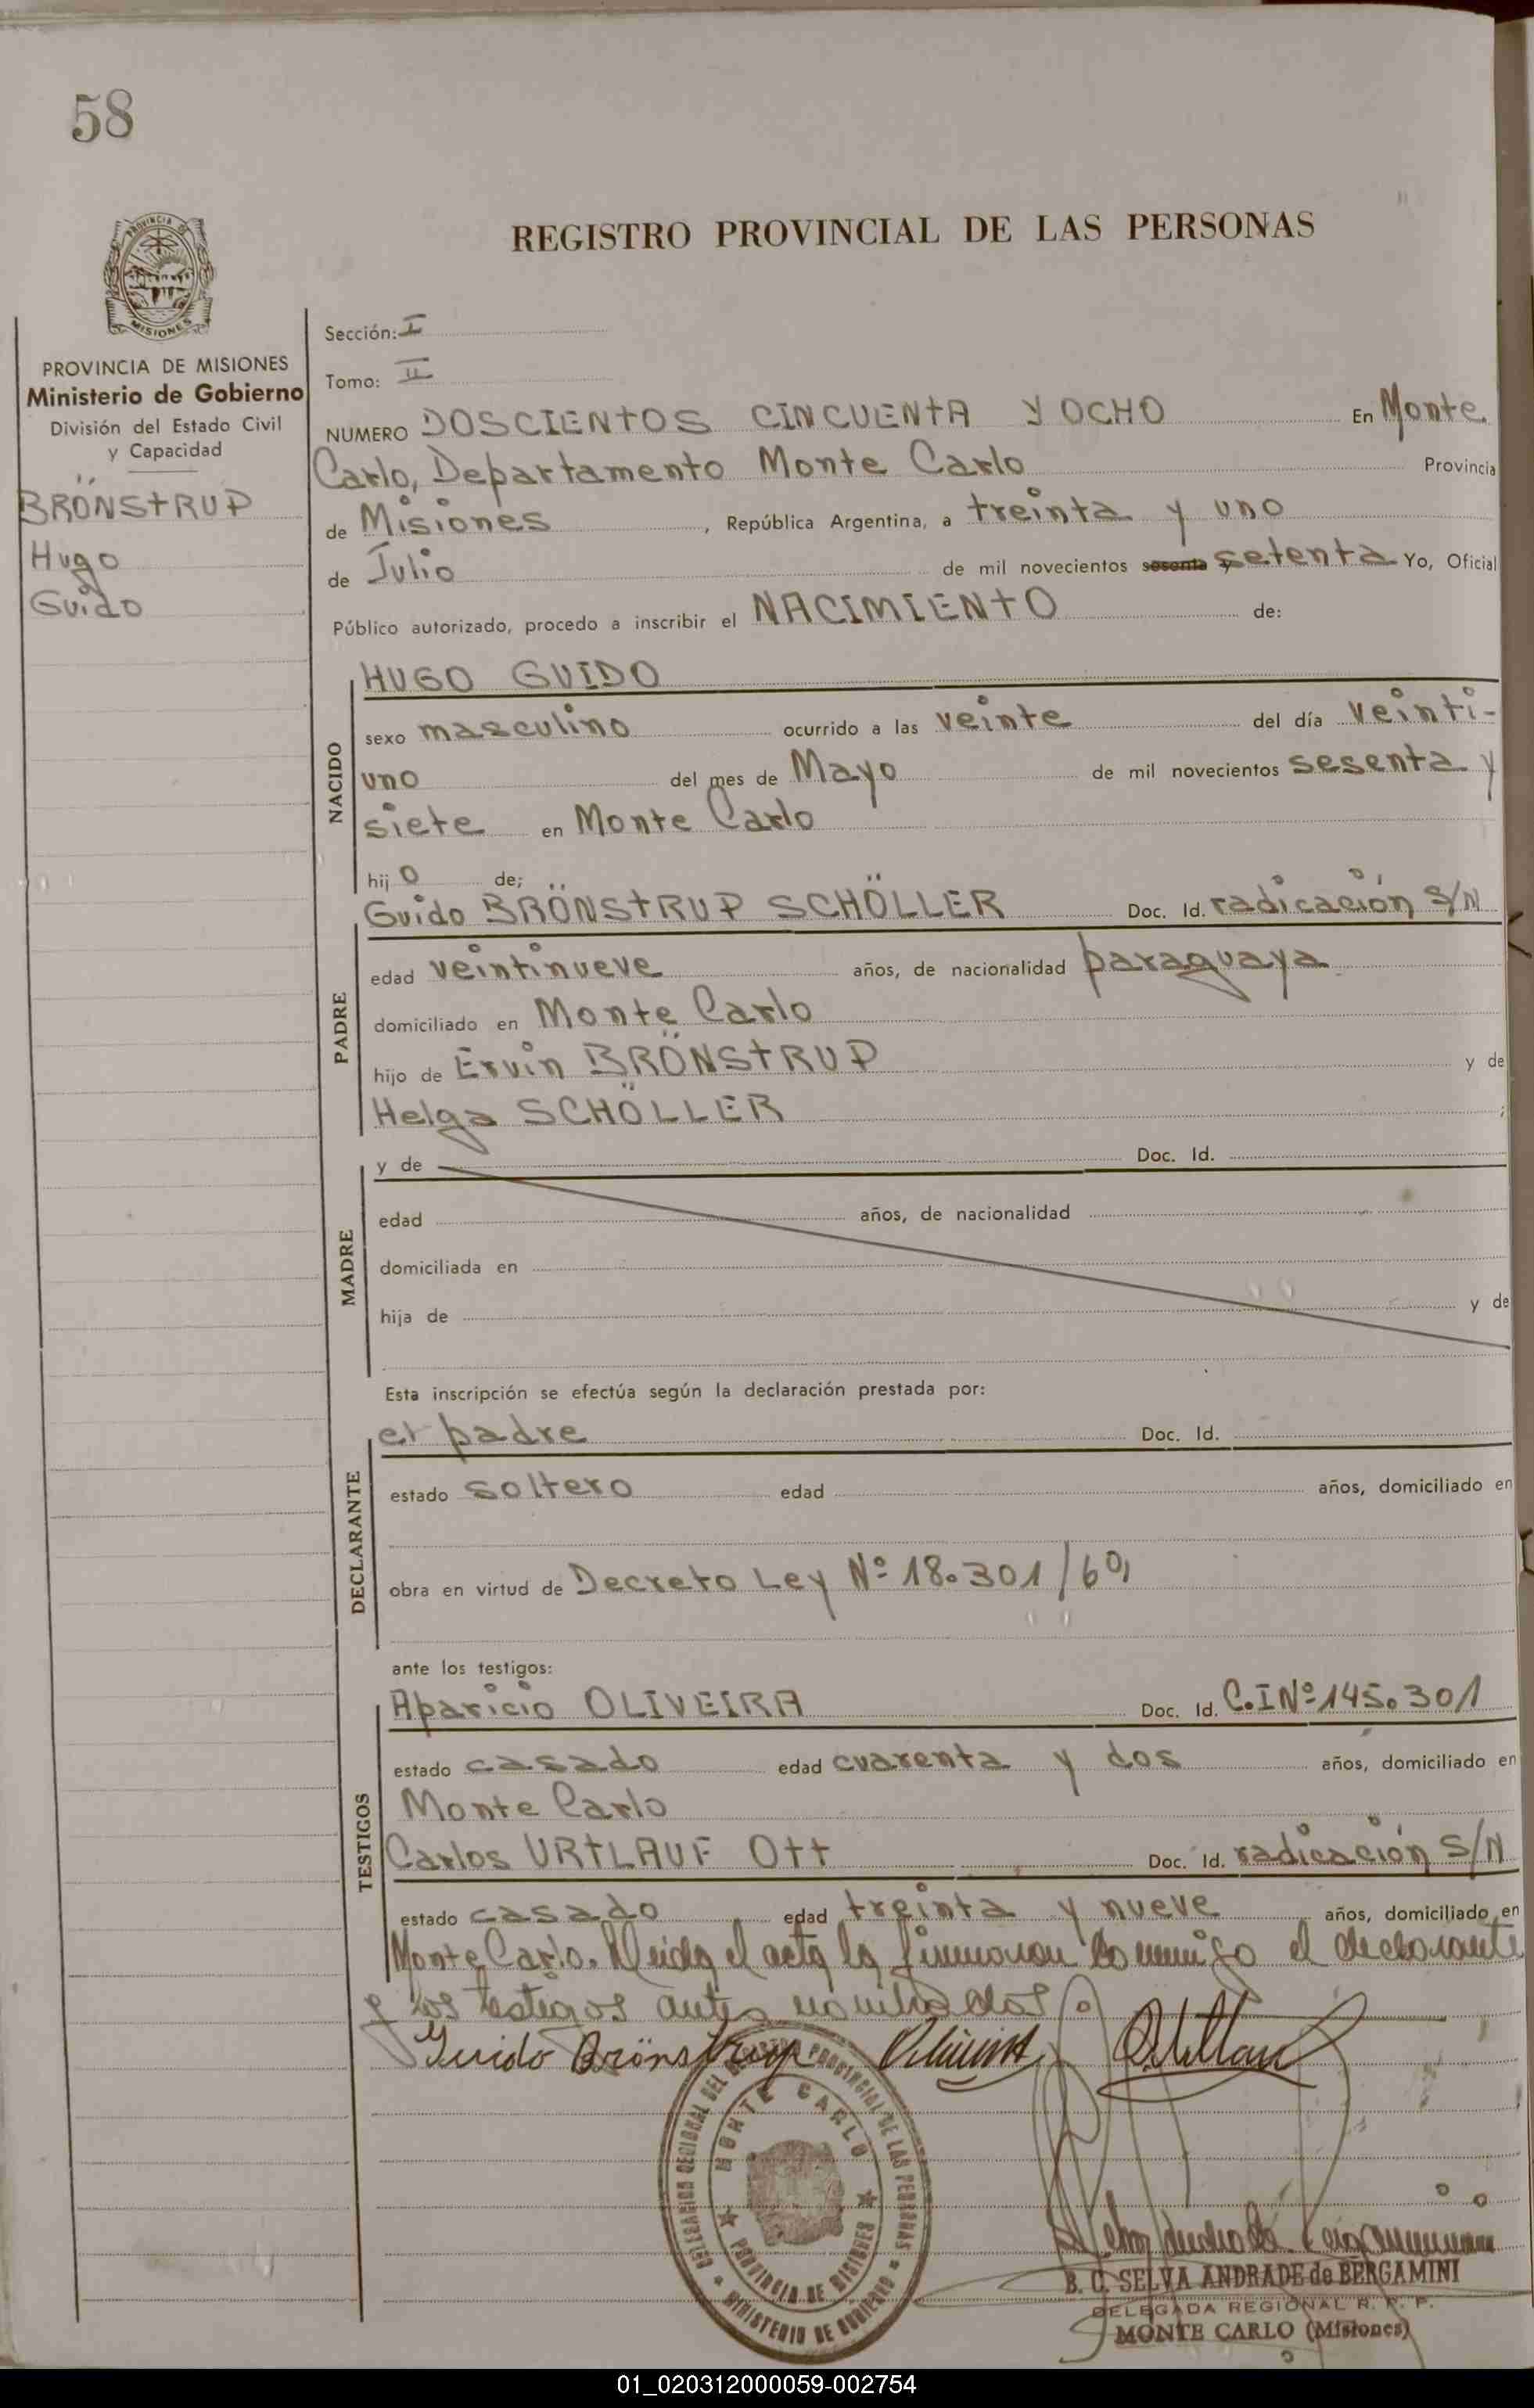 58
PROVINCIA DE
MISIONES
PROVINCIA DE MISIONES
Ministerio de Gobierno
División del Estado Civil
y Capacidad
BRÖNSTRUP
Hugo
Guido
REGISTRO PROVINCIAL DE LAS PERSONAS
Sección: I
Tomo: II
NUMERO DOSCIENTOS CINCUENTA Y OCHO En Monte
Carlo, Departamento Monte Carlo Provincia
de Misiones, República Argentina, a treinta y uno
de Julio de mil novecientos sesenta y setenta Yo, Oficial
Público autorizado, procedo a inscribir el NACIMIENTO de:
NACIDO
HUGO GUIDO
sexo masculino ocurrido a las veinte del día veinti-
uno del mes de Mayo de mil novecientos sesenta y
siete en Monte Carlo
hijo de;
PADRE
Guido BRÖNSTRUP SCHÖLLER Doc. Id. radicación S/N
edad veintinueve años, de nacionalidad paraguaya
domiciliado en Monte Carlo
hijo de Ervin BRÖNSTRUP y de
Helga SCHÖLLER ;
MADRE
y de Doc. Id.
edad años, de nacionalidad
domiciliada en
hija de y de
Esta inscripción se efectúa según la declaración prestada por:
DECLARANTE
el padre Doc. Id.
estado soltero edad años, domiciliado en
obra en virtud de Decreto Ley Nº 18.301/69,
ante los testigos:
TESTIGOS
Aparicio OLIVEIRA Doc. Id. C.I Nº 145.301
estado casado edad cuarenta y dos años, domiciliado en
Monte Carlo
Carlos URTLAUF Ott Doc. Id. radicación S/N
estado casado edad treinta y nueve años, domiciliado en
Monte Carlo. Leida el acta la firmaron conmigo el declarante
y los testigos antes nombrados.
Guido Brönstrup
DELEGACION REGIONAL DEL REGISTRO PROVINCIAL DE LAS PERSONAS
MINISTERIO DE GOBIERNO
MONTE CARLO
PROVINCIA DE MISIONES
B. C. SELVA ANDRADE de BERGAMINI
DELEGADA REGIONAL R. P. P.
MONTE CARLO (Misiones)
01_020312000059-002754